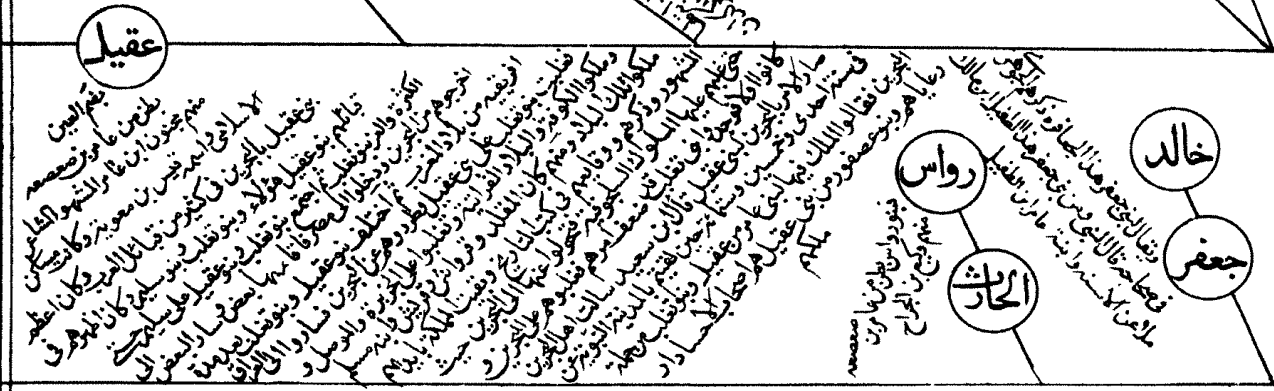 عقيل
بفتح العين
بطن من عامر بن صعصعه
منهم مجنون ابن عامر المشهور الشاعر
الاسلامي واسمه قيس بن معوية وكانت مساكن
بنى عقيل بالبحرين فى كثير من قبائل العرب وكان اعظم
قبائلهم بنو عقيل هؤلاء وبنو تغلب وبنو سليم وكان اظهرهم فى
الكثرة والعز بنو تغلب ثم اجتمع بنو تغلب وبنو عقيل على بني سليم حتى
اخرجوهم من البحرين ودخلوا الى مصر فاقام بها بعض وسار البعض الى
افريقية من بلاد المغرب ثم اختلف بنو عقيل وبنو تغلب بعد مدة
فغلبت بنو تغلب على بني عقيل وطردوهم عن البحرين فساروا الى العراق
وملكوا الكوفة والبلاد الفراتية وتغلبوا على الجزيرة والموصل و
ملكوا تلك البلاد ومنهم كان المقلد وقرواش وقريش وابنه مسلم
المشهور ذكرهم ووقايعهم فى كتب التاريخ وبقيت المملكة بايديهم
حتى غلبهم عليها الملوك السلجوقية فتحولوا عنها الى البحرين حيث
كانوا اولا فوجدوا بنى تغلب قد ضعف امرهم فغلبوهم على البحرين و
صار الامر بالبحرين لبنى عقيل قال ابن سعيد سالت اهل البحرين
فى سنة احدى وخمسين وستمائة حين لقيتهم بالمدينة النبوية عن
البحرين فقالوا الملك فيها لبنى عامر بن عقيل وبنو تغلب من جملة
رعاياهم وبنو عصفور من بنى عقيل هم اصحاب الاحساء دار
ملكهم
رواس
الحارث
فبنو رواس بطن من عامر بن صعصعه
منهم وكيع بن الجراح
خالد
جعفر
ويقال لبني جعفر هذا الجعافره ذكره الجوهرى
فى صحاحه قال ومن بنى جعفر هذا الطفيل بن مالك
ملاعب الاسنه وابنه عامر بن الطفيل